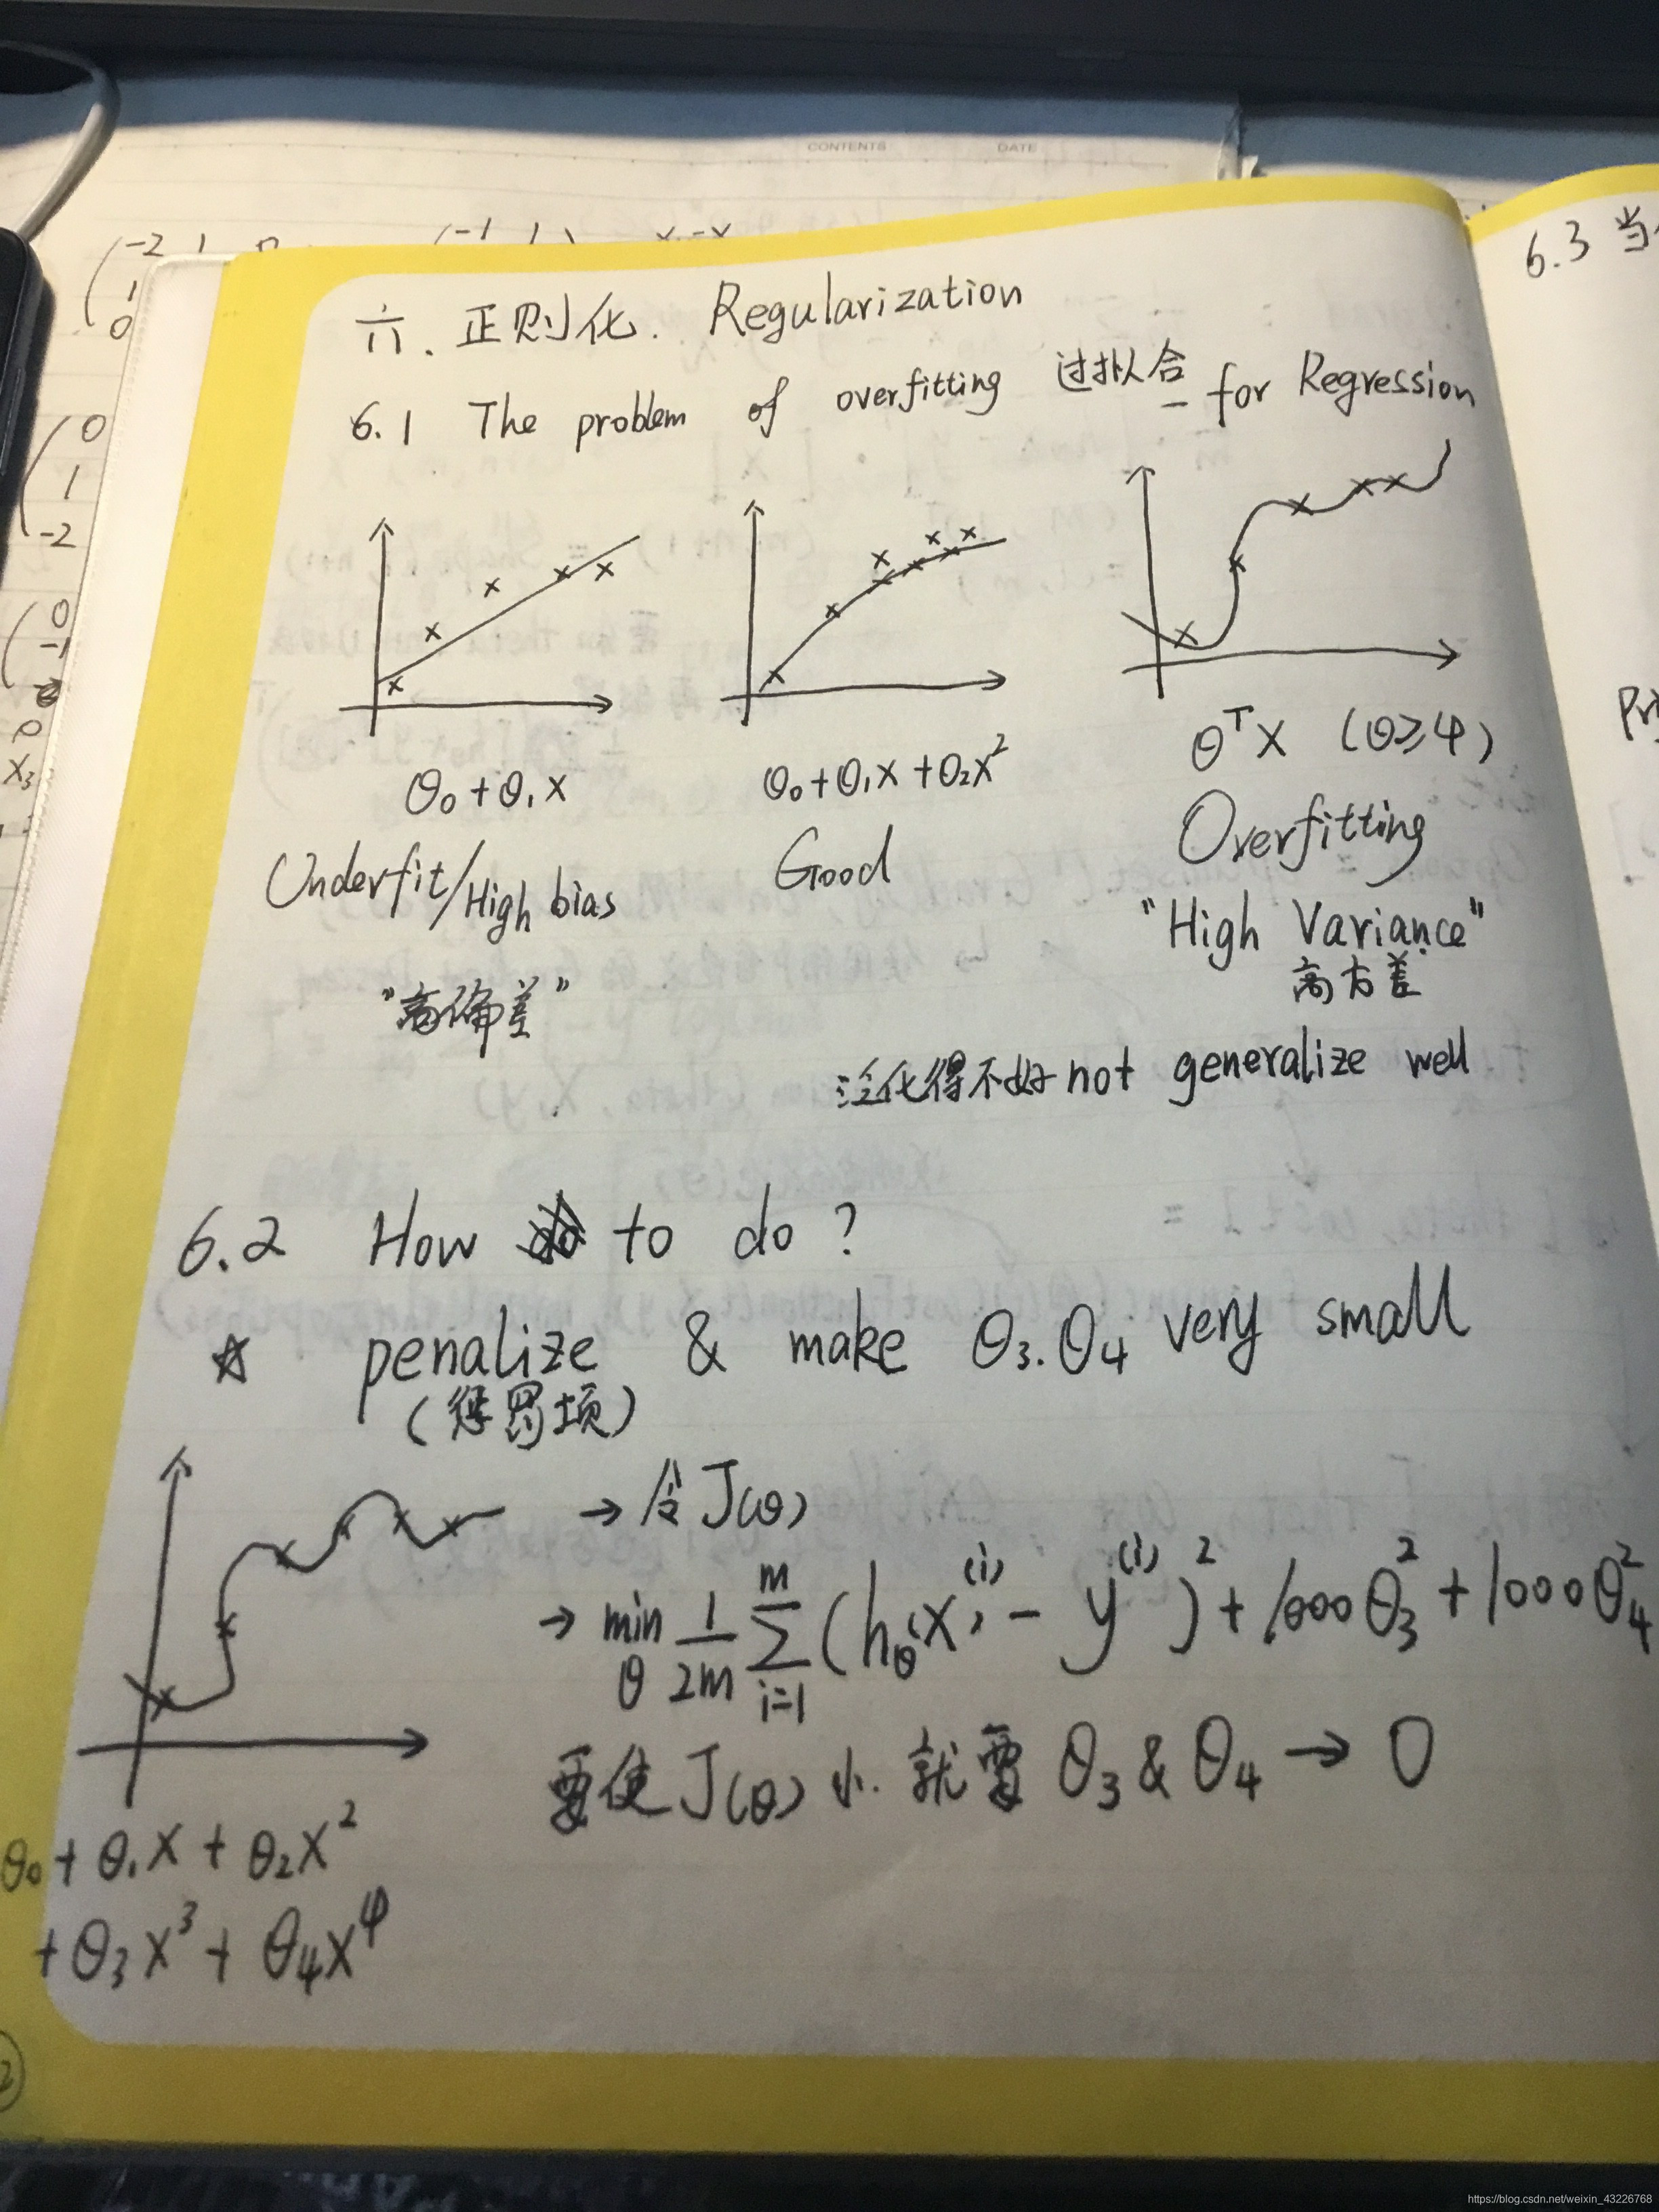 CONTENTS DATE
六. 正则化. Regularization
6.1 The problem of overfitting 过拟合 – for Regression
θ₀ + θ₁x
θ₀ + θ₁x + θ₂x²
θᵀx (θ≥4)
Underfit/High bias
Good
Overfitting
"高偏差"
"High Variance"
高方差
泛化得不好 not generalize well
6.2 How to do ?
☆ penalize & make θ₃. θ₄ very small
(惩罚项)
→ 令 J(θ)
→ min θ 1/2m Σ i=1 m (hθ(x⁽ⁱ⁾) - y⁽ⁱ⁾)² + 1000θ₃² + 1000θ₄²
要使 J(θ) 小. 就要 θ₃ & θ₄ → 0
θ₀ + θ₁x + θ₂x²
+ θ₃x³ + θ₄x⁴
6.3 当
https://blog.csdn.net/weixin_43226768